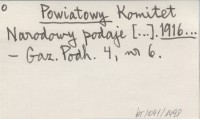 Powiatowy Komitet
Narodowy podaje [...]. 1916...
– Gaz. Podh. 4, nr 6.